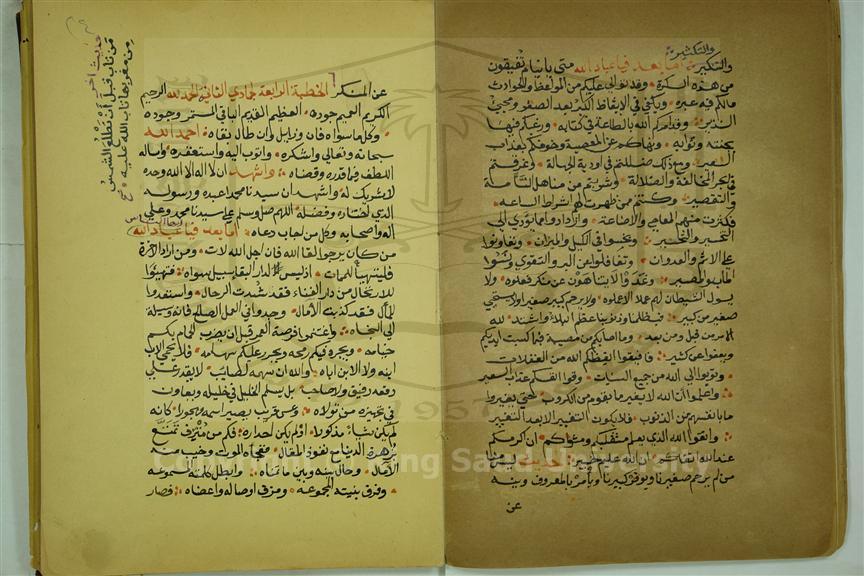 والتكثير
والتكبير أما بعد فيا عباد الله متى يا نيام تفيقون
من هذه السكرة وقد توالى عليكم من المواعظ والحوادث
مالكم فيه عبرة ويكفي في الإيقاظ الكبر بعد الصغر ومجيئ
النذير وقد أمركم الله بالطاعة في كتابه ورغبكم فيها
بجنته وثوابه ونهاكم عن المعصية وخوفكم بعذاب
السعير ومع ذلك ضللتم في أودية الجهالة وغرقتم
في بحر المخالفة والضلالة وشربتم من مناهل
والتقصير وكنتم ممن ظهرت لهم اشراط الساعة
فكثرت منهم المعاصي والاضاعة وازدادوا عما يؤدي الى
وبخسوا في الكيل والميزان وتعاونوا
على الاثم والعدوان وتغافلوا عن البر والتقوى ونسوا
المآب والمصير وغدوا لا يتناهون عن منكر فعلوه ولا
يسول الشيطان لهم عملا الا عملوه ولا يرحم كبير صغيرا ولا يستحي
صغير من كبير فبظلمنا وذنوبنا عظم البلاء واشتد لله
الامر من قبل ومن بعد وما اصابكم من مصيبة فبما كسبت ايديكم
ويعفو عن كثير فافيقوا ايقظكم الله من الغفلات
وتوبوا الى الله من جميع السيئات وقوا انفسكم عذاب السعير
واعلموا ان الله لا يغير ما بقوم من الكروب حتى يغيروا
ما بانفسهم من الذنوب فلا يكون التغيير الا بعد التغيير
واتقوا الله الذي يعلم متقلبكم ومثواكم ان اكرمكم
عند الله اتقاكم ان الله عليم خبير الحديث ليس منا
من لم يرحم صغيرنا ويوقر كبيرنا ويأمر بالمعروف وينه
عن
عن المنكر الخطبة الرابعة لجمادي الثانية الحمد لله الرحيم
الكريم العميم جوده العظيم القديم الباقي المستمر وجوده
وكلما سواه فان وزايل وان طال بقاه احمد الله
سبحانه وتعالى واشكره واتوب اليه واستغفره واساله
اللطف فيما قدره وقضاه واشهد ان لا اله الا الله وحده
لا شريك له واشهد ان سيدنا محمدا عبده ورسوله
الذي اختاره وفضله اللهم صل وسلم على سيدنا محمد وعلى
اله واصحابه وكل من اجاب دعاه أما بعد فيا عباد الله
من كان يرجوا لقا الله فان اجل الله لات ومن اراد الاخرة
فليتهيا للممات اذ ليس لدار البقا سبيل سواه فتهيؤا
للارتحال من دار الفناء فقد شدت الرحال واستعدوا
للمآل فقد كذبت الآمال وجدوا في العمل الصالح فانه وسيلة
الى النجاه واغتنموا فرصة العمر قبل ان يضرب الحمام بكم
خيامه ويجرد فيكم رمحه ويجرر عليكم سهامه فلا يحمي الاب
ابنه ولا الابن اباه والله ان سهمه لصائب لا يقدر على
دفعه رفيق ولا صاحب بل يسلم الخليل في خليله ويعاون
في تجهيزه من تولاه وعن قريب يصير اسمه مهجورا كانه
لم يكن شيئا مذكورا او لم يكن احد راه فكم من مترف تمتع
زهرة الدنيا مع نفوذ المقال فجاه الموت وخيب منه
الآمال وحال بينه وبين ما تمناه وابطل كلمته المسموعه
وفرق بنيته المجموعه ومزق اوصاله واعضاه فصار
حديث اخر
من تاب قبل ان تطلع الشمس
من مغربها تاب الله عليه
King Saud University
1957